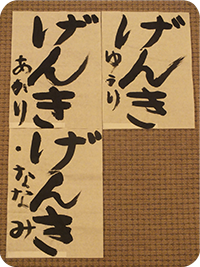 げんき
あかり
げんき
ゆうり
げんき
・ななみ